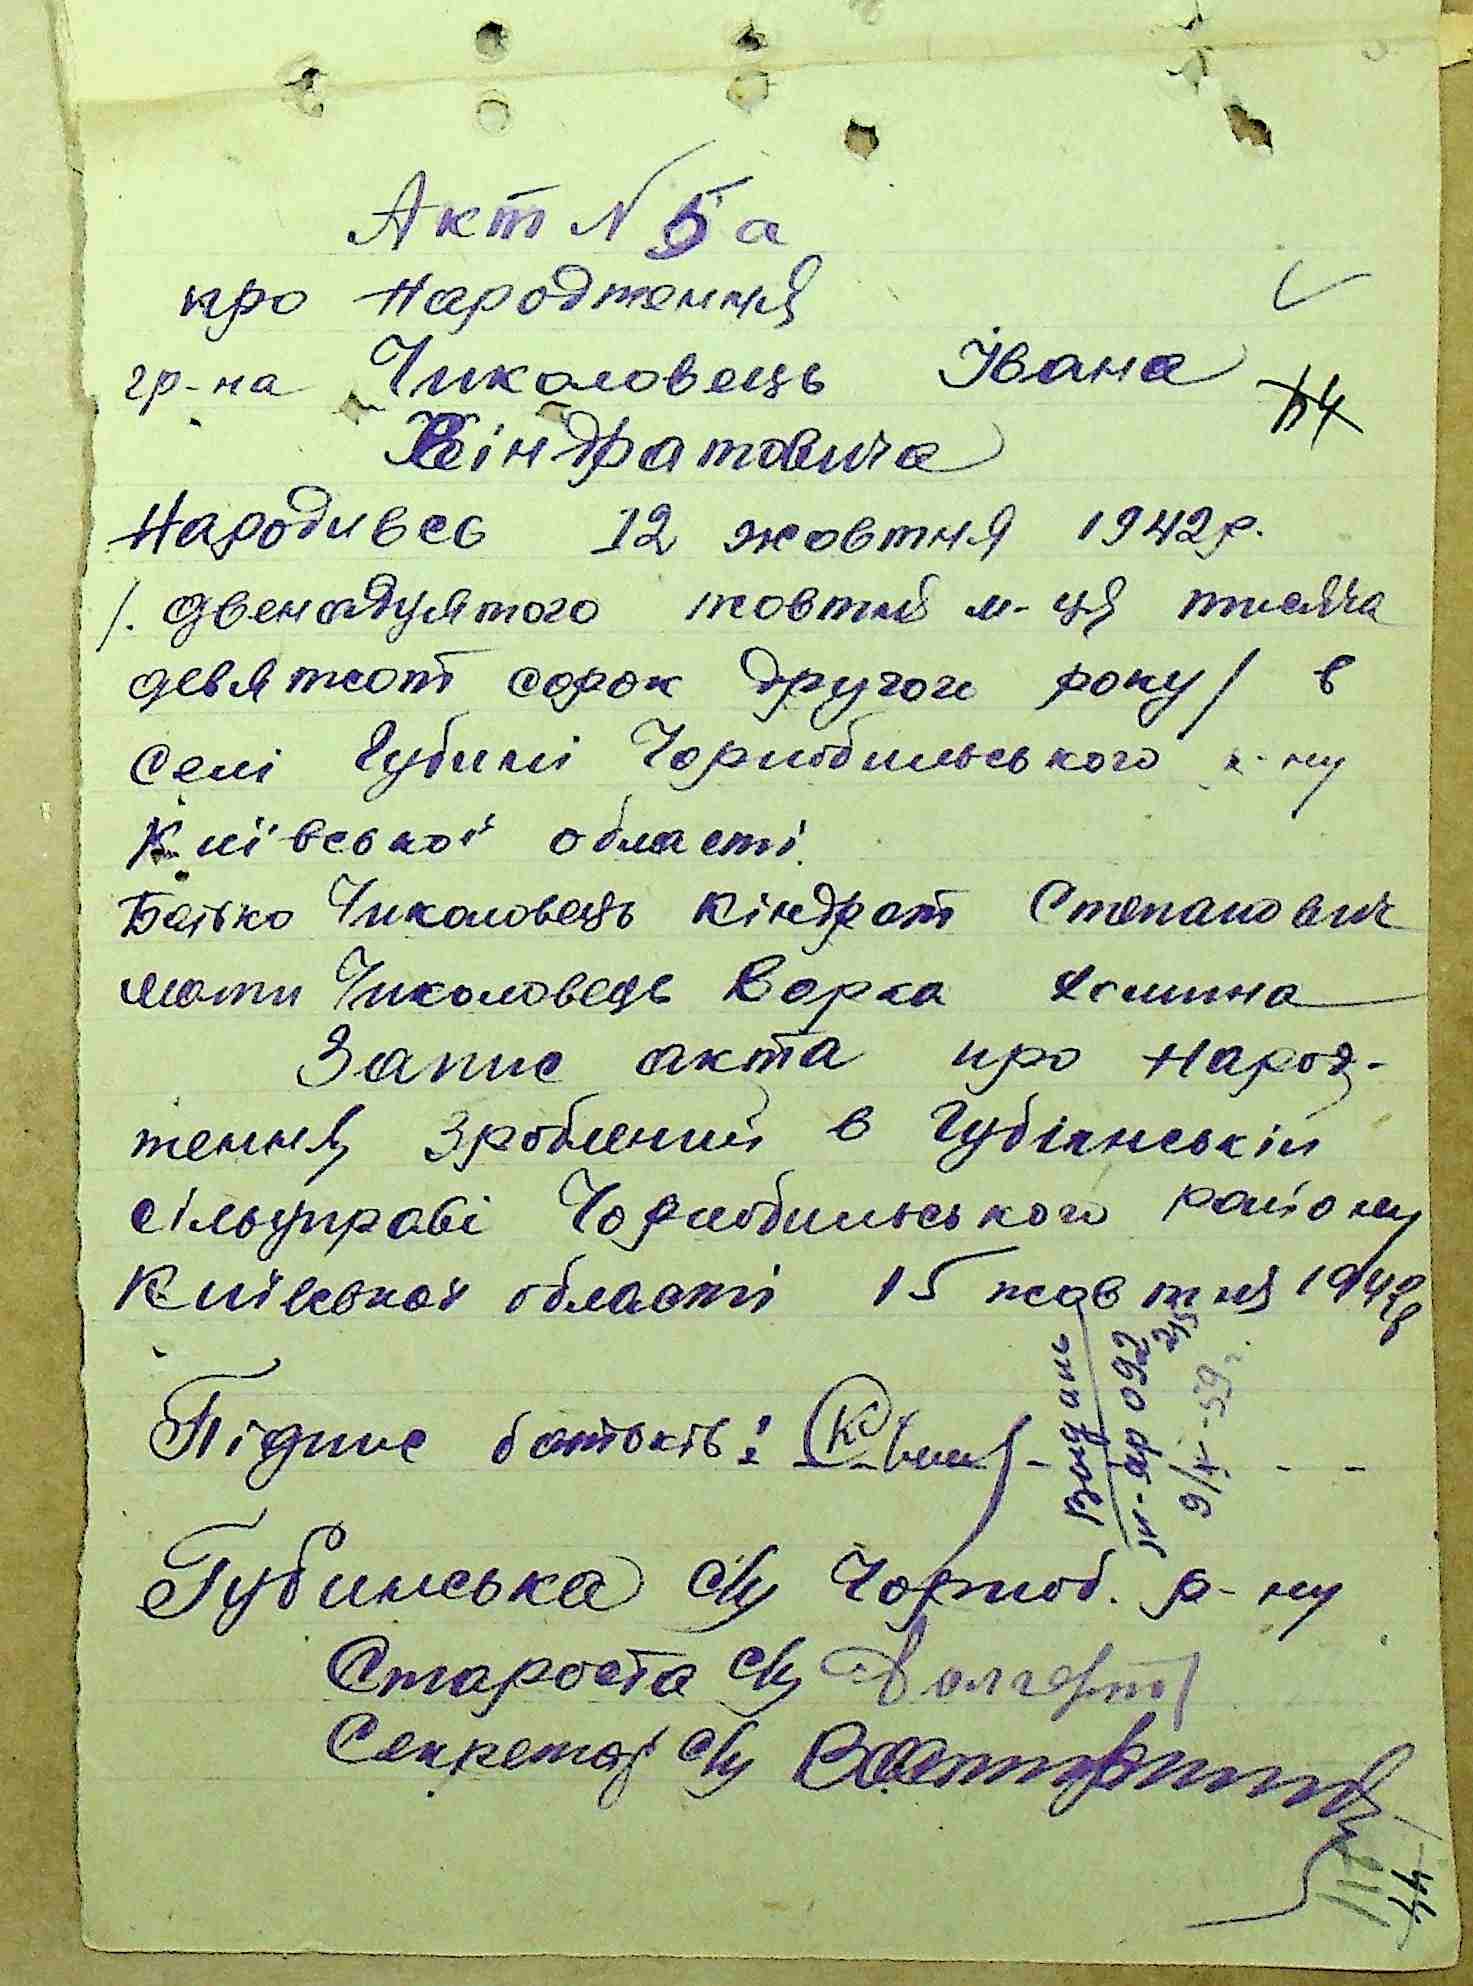 Акт N 5а
про Народження
гр-на Чиколовець Івана
Кіндратовича
Народивсь 12 жовтня 1942р.
/. двенадцятого жовтня м-ця тисяча
девятсот сорок другого року/ в
селі Губині Чорнобильського р-ну
Київської області.
Батько Чиколовець Кіндрат Степанович
мати Чиколовець Варка Хомина
Запис акта про Народ-
ження зроблений в Губинській
сільуправі Чорнобильського району
Київської області 15 жовтня 1942р
Підпис батьків:
Видань
9/X-59 г.
Губинська с/у Чорноб. р-ну
Староста с/у
Секретар с/у
44